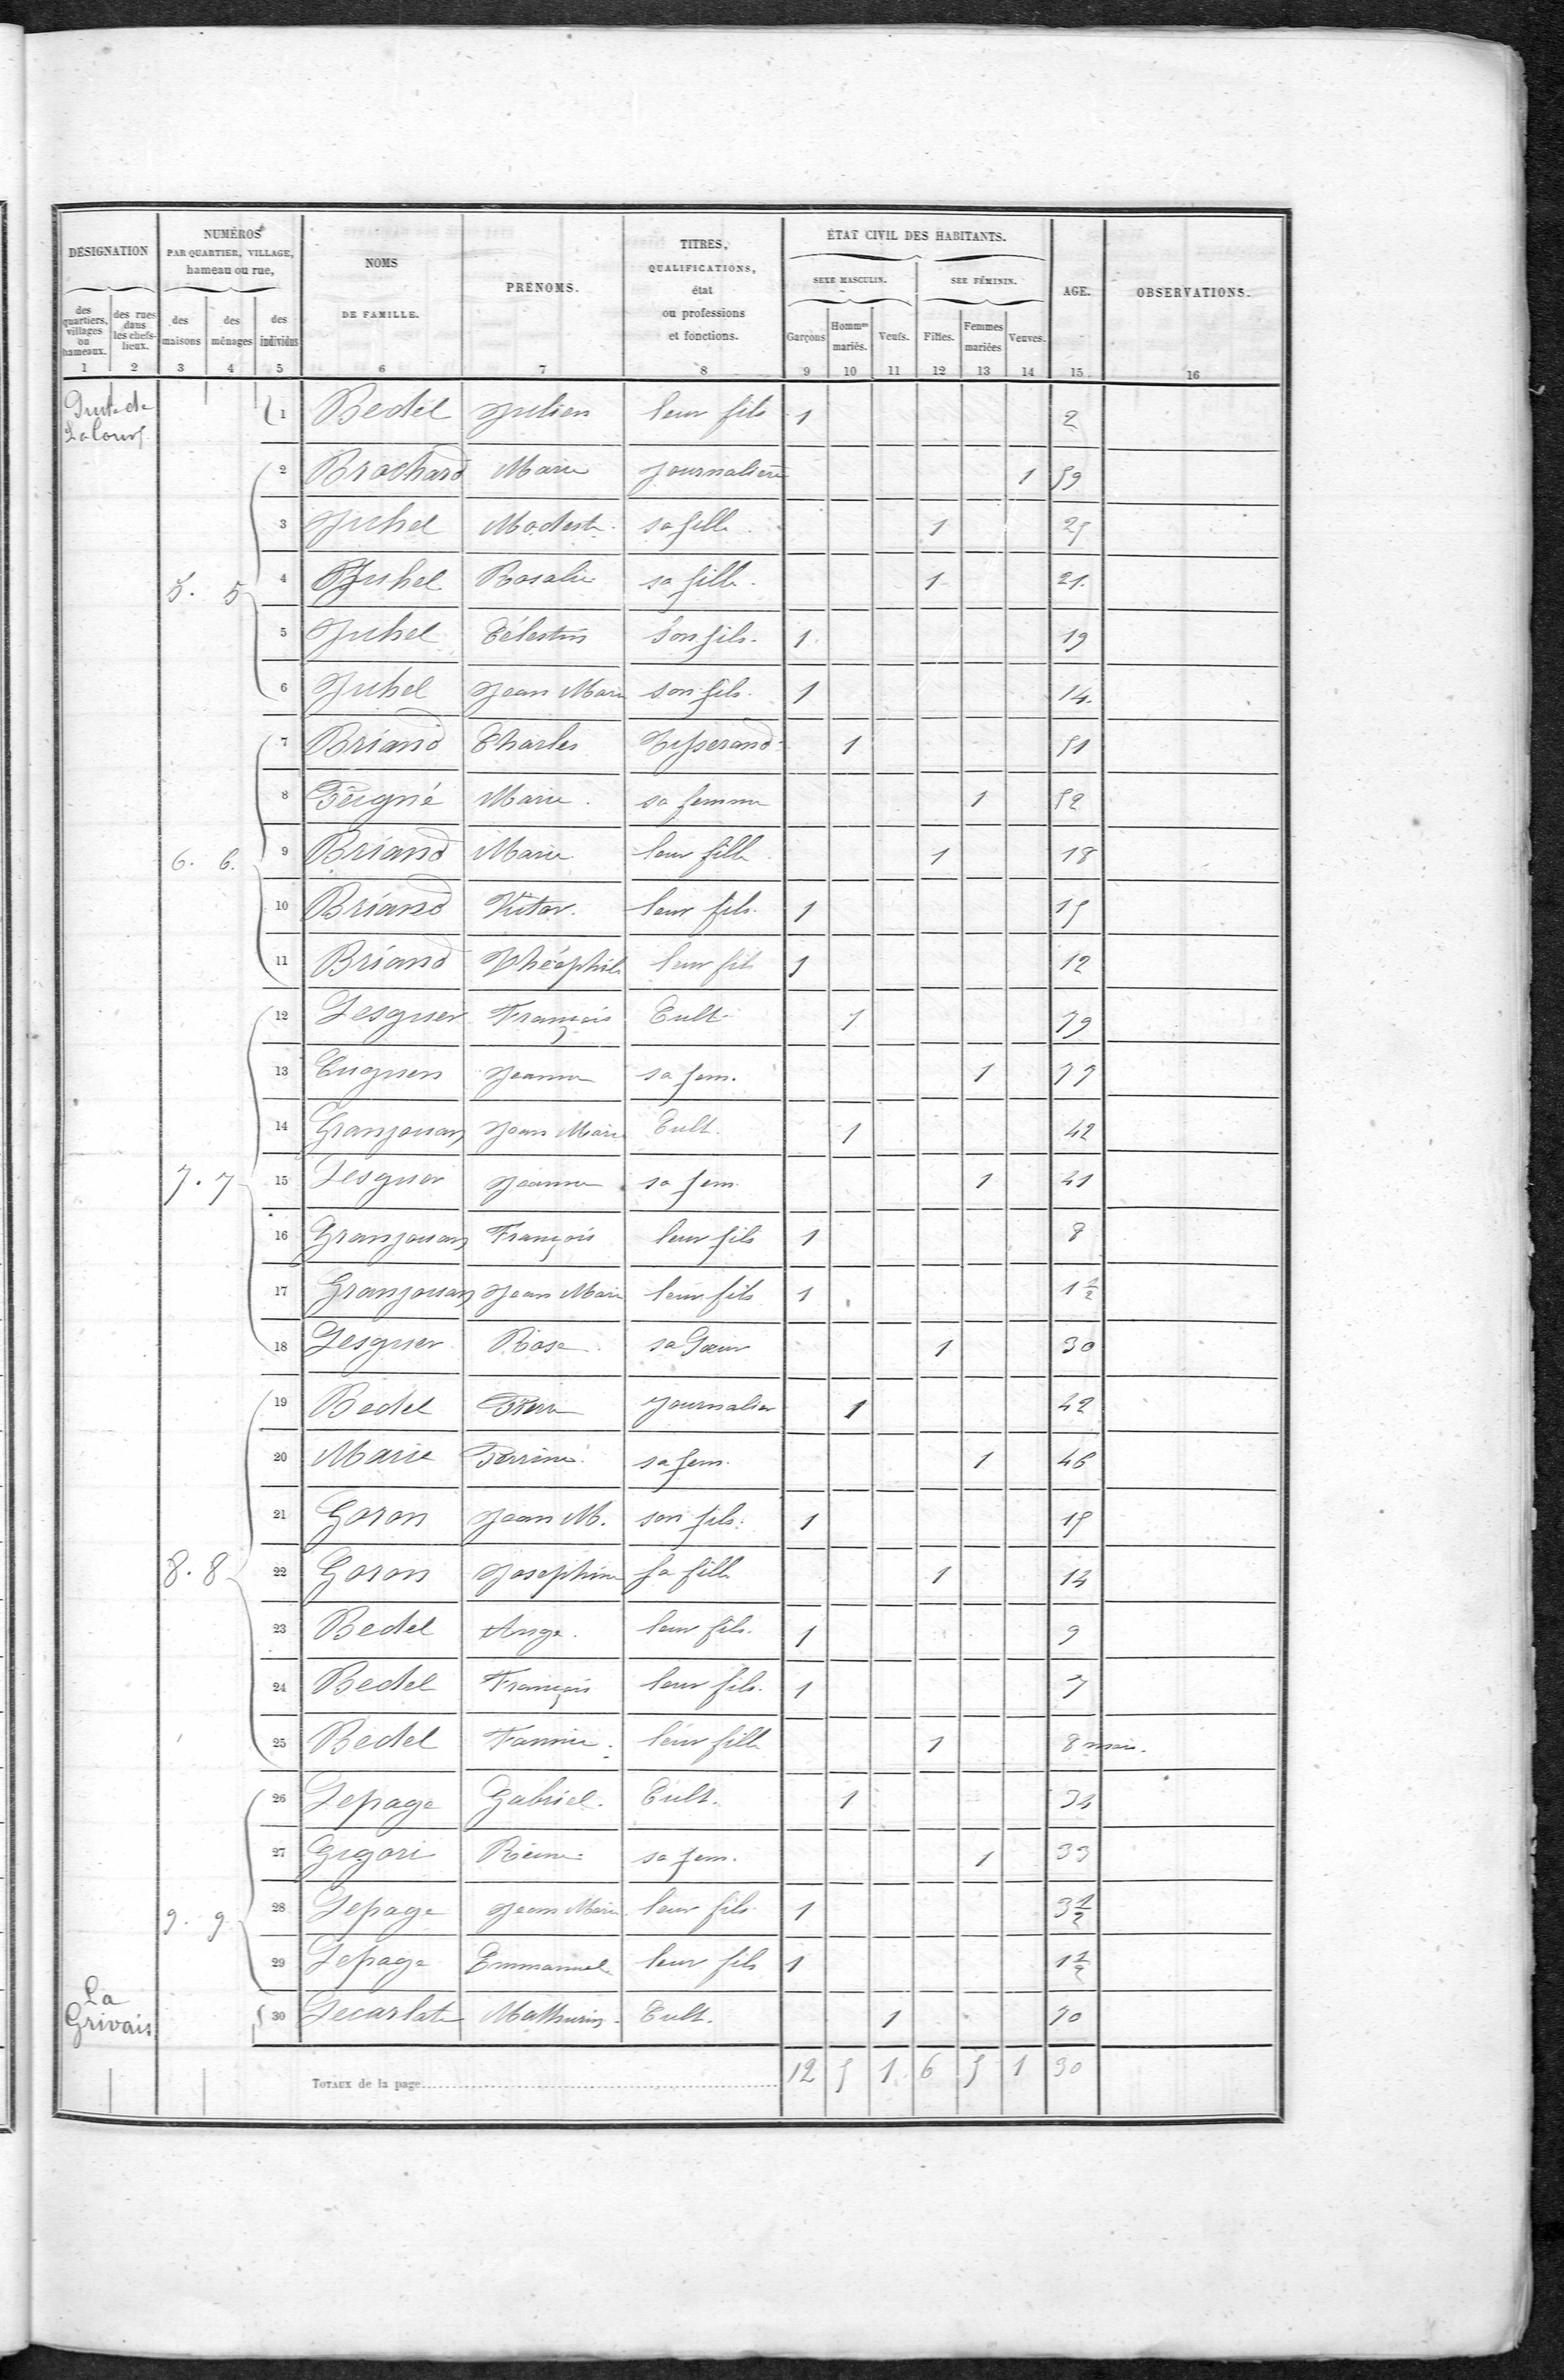 DÉSIGNATION NUMÉROS PAR QUARTIER, VILLAGE, hameau ou rue, NOMS DE FAMILLE. PRÉNOMS. TITRES, QUALIFICATIONS, état ou professions et fonctions. ÉTAT CIVIL DES HABITANTS. AGE. OBSERVATIONS.
des quartiers, villages ou hameaux. des rues dans les chefs-lieux. des maisons des ménages des individus SEXE MASCULIN. SEE FÉMININ.
Garçons Hommes mariés. Veufs. Filles. Femmes mariées Veuves.
1 2 3 4 5 6 7 8 9 10 11 12 13 14 15 16
1 Bedel Julien leur fils 1 2
2 Brochard Marie Journalière 1 59
3 Juhel Modeste sa fille 1 25
5. 5 4 Juhel Rosalie sa fille 1 21.
5 Juhel Célestin son fils 1 19
6 Juhel Jean Marie son fils 1 14
7 Briand Charles Tisserand 1 51
8 Feigné Marie sa femme 1 52
6. 6. 9 Briand Marie leur fille 1 18
10 Briand Victor leur fils 1 15
11 Briand Théophile leur fils 1 12
12 Lesguer François Cult. 1 79
13 Cuguen Jeanne sa fem. 1 77
14 Granjouan Jean Marie Cult. 1 42
7. 7 15 Lesguer Jeanne sa fem. 1 41
16 Granjouan François leur fils 1 8
17 Granjouan Jean Marie leur fils 1 1 1/2
18 Lesguer Rose sa Sœur 1 30
19 Bedel Pierre Journalier 1 42
20 Marie Perrine sa fem. 1 46
21 Goron Jean M. son fils 1 15
8. 8 22 Goron Josephine sa fille 1 14
23 Bedel Ange. leur fils. 1 9
24 Bedel François leur fils. 1 7
25 Bedel Fannie leur fille 1 8 mois.
26 Lepage Gabriel. Cult. 1 34
27 Grigori Reine sa fem. 1 33
9. 9 28 Lepage Jean Marie leur fils 1 3 1/2
29 Lepage Emmanuel leur fils 1 1 1/2
La Grivais 30 Lecarlate Mathurin Cult. 1 70
TOTAUX de la page 12 5 1 6 5 1 30